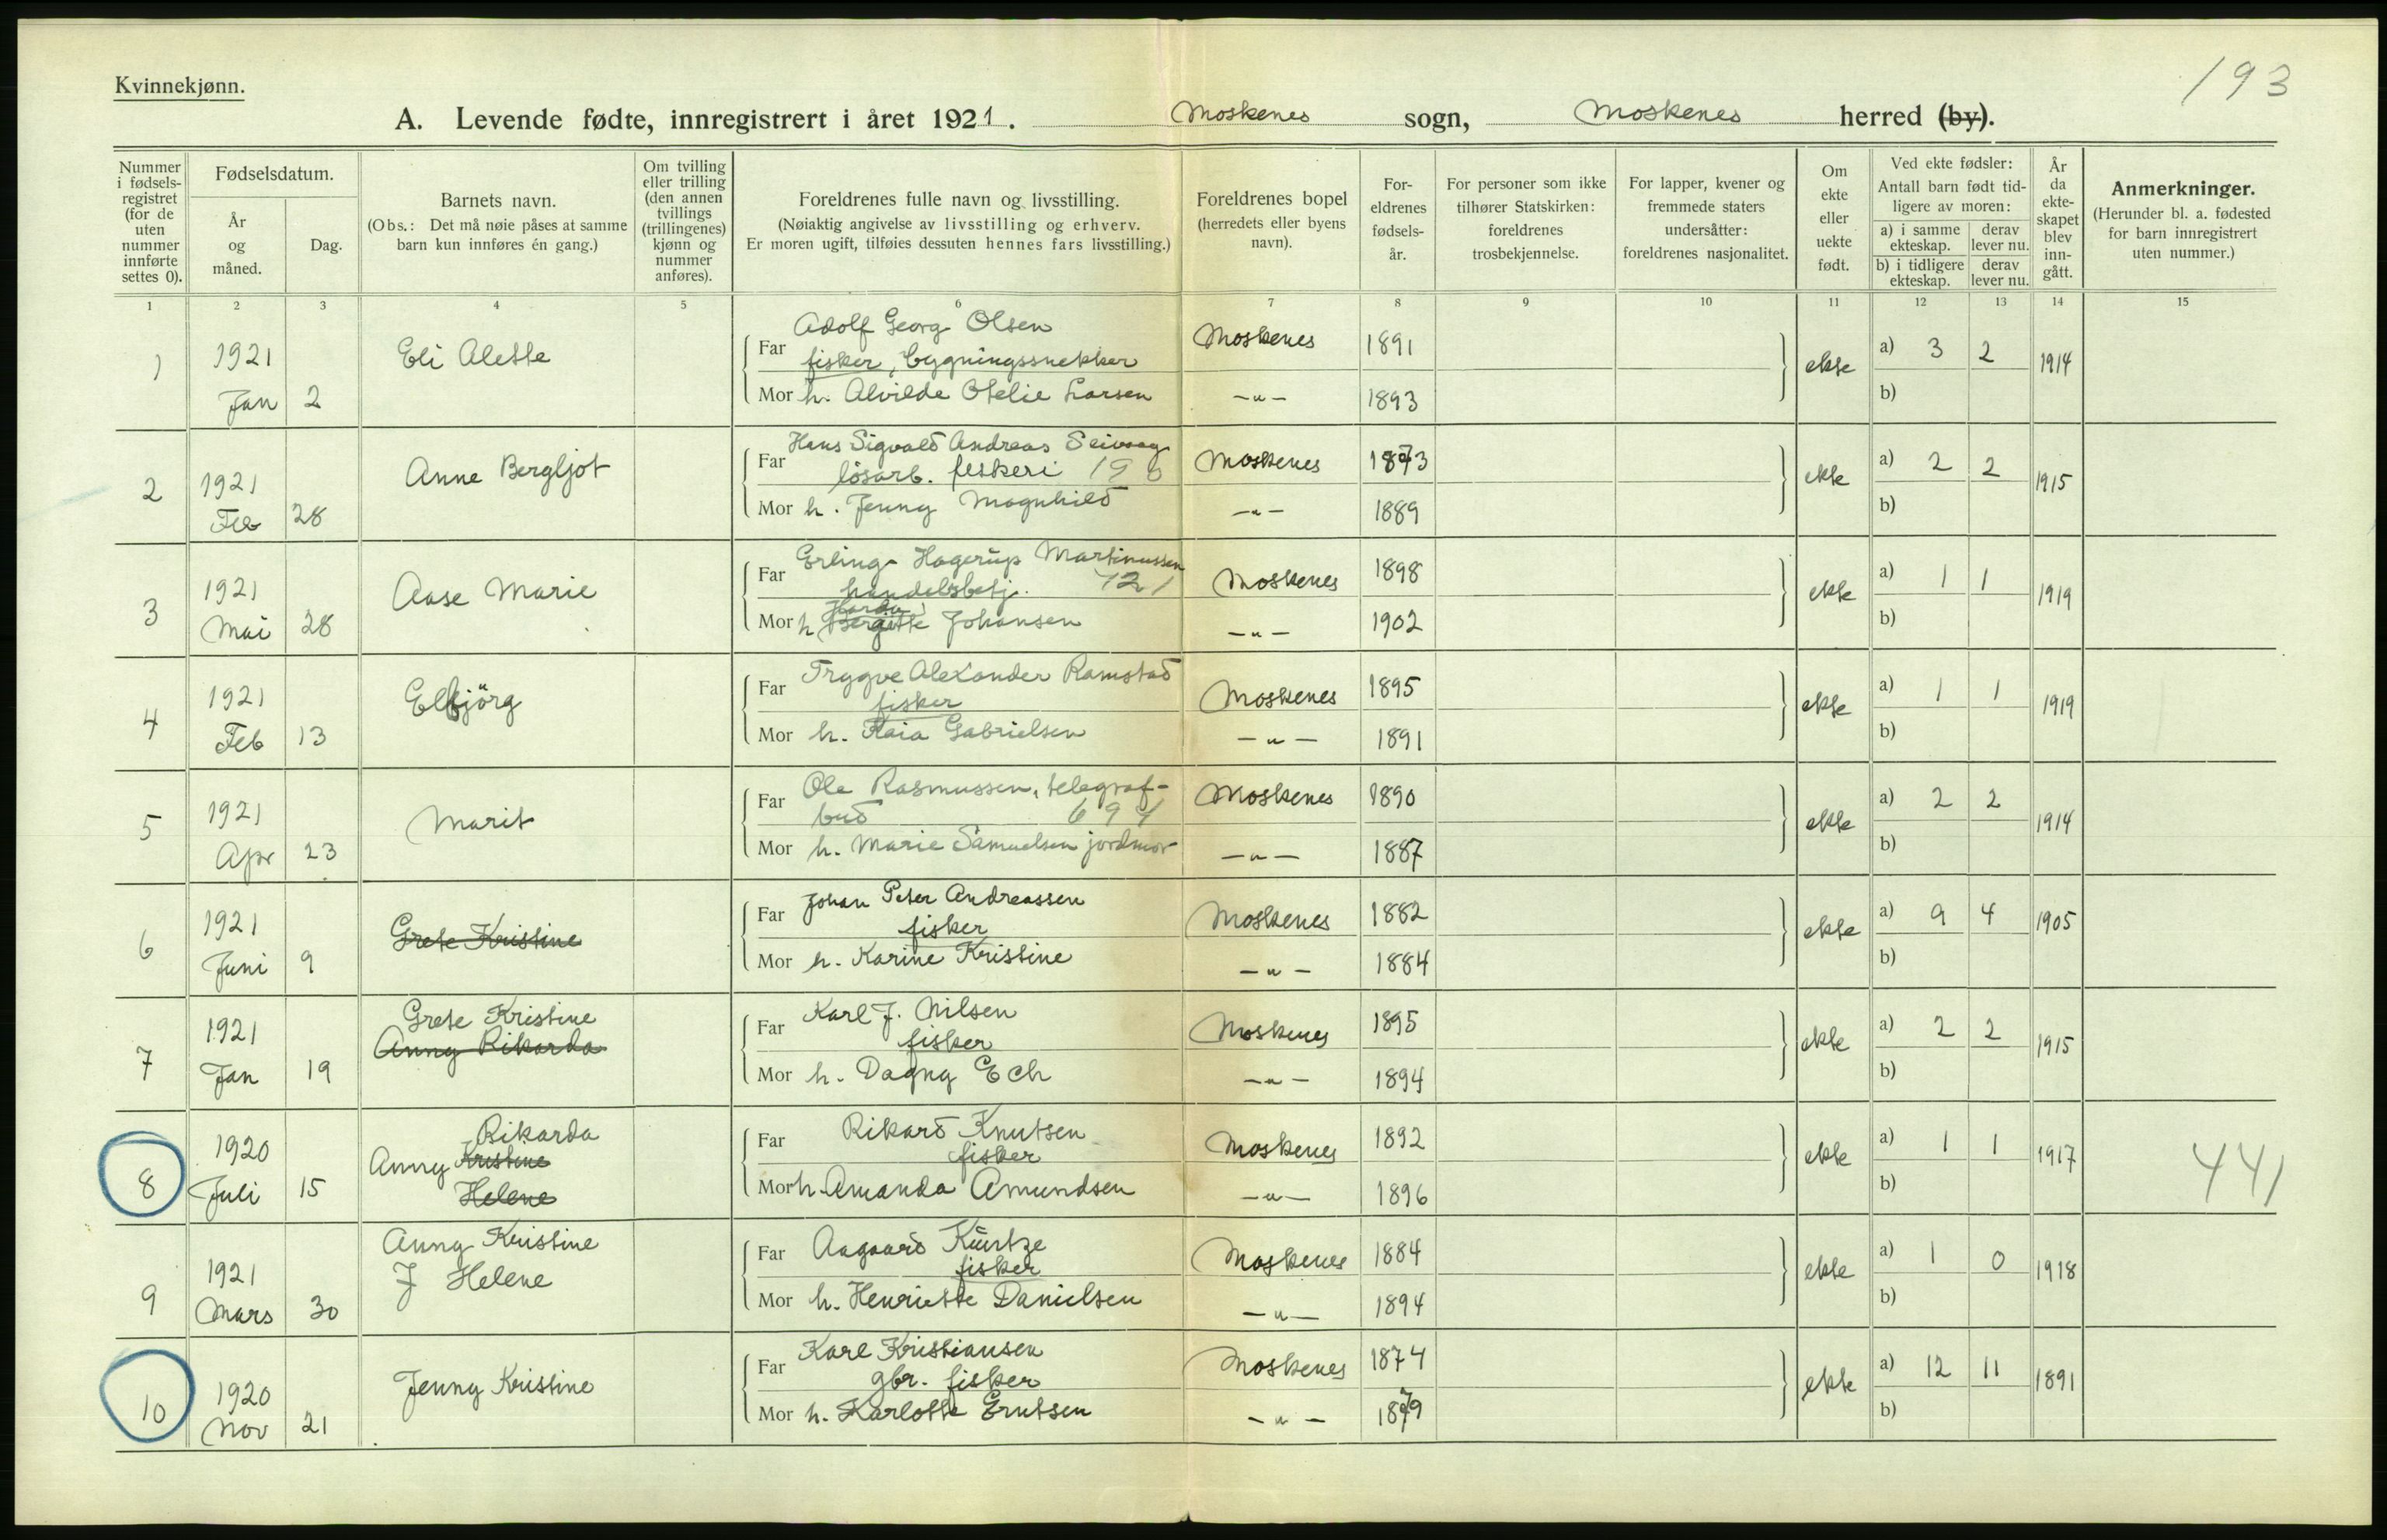 193
Kvinnekjønn.
A. Levende fødte, innregistrert i året 1921. Moskenes sogn, Moskenes herred (by).
Nummer i fødsels-registret (for de uten nummer innførte settes 0).
Fødselsdatum.
År og måned.
Dag.
Barnets navn.
(Obs.: Det må nøie påses at samme barn kun innføres én gang.)
Om tvilling eller trilling (den annen tvillings (trillingenes) kjønn og nummer anføres).
Foreldrenes fulle navn og livsstilling.
(Nøiaktig angivelse av livsstilling og erhverv.
Er moren ugift, tilføies dessuten hennes fars livsstilling.)
Foreldrenes bopel (herredets eller byens navn).
For-eldrenes fødsels-år.
For personer som ikke tilhører Statskirken: foreldrenes trosbekjennelse.
For lapper, kvener og fremmede staters undersåtter: foreldrenes nasjonalitet.
Om ekte eller uekte født.
Ved ekte fødsler:
Antall barn født tid-ligere av moren:
a) i samme ekteskap. derav lever nu.
b) i tidligere ekteskap. derav lever nu.
År da ekte-skapet blev inn-gått.
Anmerkninger.
(Herunder bl. a. fødested for barn innregistrert uten nummer.)
1 2 3 4 5 6 7 8 9 10 11 12 13 14 15
1 1921 Jan 2 Eli Alette
Far Adolf Georg Olsen
fisker, bygningssnekker Moskenes 1891 ekte a) 3 2 1914
Mor h. Alvilde Otelie Larsen –„– 1893 b)
2 1921 Feb 28 Anne Bergljot
Far Hans Sigvald Andreas Seivaag
løsarb. feskeri Moskenes 1873 ekte a) 2 2 1915
Mor h. Jenny Magnhild –„– 1889 b)
3 1921 Mai 28 Aase Marie
Far Erling Hagerup Martinussen
handelsbetj. 721 Moskenes 1898 ekte a) 1 1 1919
Mor h Bergitte Johansen –„– 1902 b)
4 1921 Feb 13 Elbjörg
Far Trygve Alexander Ramstad
fisker Moskenes 1895 ekte a) 1 1 1919
Mor h. Kaia Gabrielsen –„– 1891 b)
5 1921 Apr 23 Marit
Far Ole Rasmussen, telegraf-
bud 694 Moskenes 1890 ekte a) 2 2 1914
Mor h. Marie Samuelsen jordmor –„– 1887 b)
6 1921 Juni 9 Grete Kristine
Far Johan Peter Andreassen
fisker Moskenes 1882 ekte a) 9 4 1905
Mor h. Karine Kristine –„– 1884 b)
7 1921 Jan 19 Grete Kristine
Anny Rikarda
Far Karl J. Nilsen
fisker Moskenes 1895 ekte a) 2 2 1915
Mor h. Dagny Ech –„– 1894 b)
8 1920 Juli 15 Rikarda
Anny Kristine
Helene
Far Rikard Knutsen
fisker Moskenes 1892 ekte a) 1 1 1917 441
Mor h. Amanda Amundsen –„– 1896 b)
9 1921 Mars 30 Anny Kristine
J Helene
Far Aagaard Küntze
fisker Moskenes 1884 ekte a) 1 0 1918
Mor h. Henriette Danielsen –„– 1894 b)
10 1920 Nov 21 Jenny Kristine
Far Karl Kristiansen
gbr. fisker Moskenes 1874 ekte a) 12 11 1891
Mor h. Karlotte Erntsen –„– 1879 b)